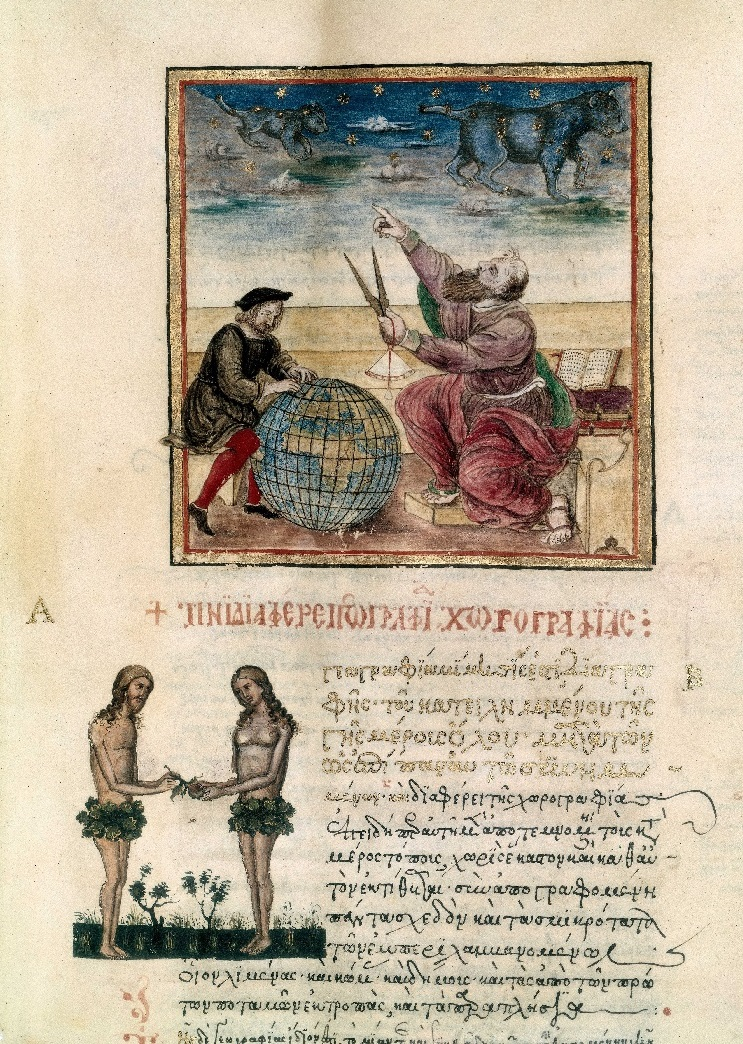 Α
+ τίνι διαφέρει ἡ γεωγραφία χωρογραφίας :
γεωγραφία μίμησίς ἐστι διὰ γρα
φῆς τοῦ κατειλημμένου τῆς
γῆς μέρους ὅλου μετὰ τῶν
ὡς ἐπίπαν
καὶ διαφέρει τῆς χωρογραφίας
ἐπειδήπερ αὕτη μὲν ἀποτεμνομένη τοὺς κατὰ
μέρος τόπους, χωρὶς ἕκαστον καὶ καθ' αὑ
τὸν ἐκτίθεται · συναπογραφομένη
πάντα σχεδὸν καὶ τὰ σμικρότατα
τῶν ἐμπεριλαμβανομένων
οἷον λιμένας · καὶ κώμας · καὶ δήμους · καὶ τὰς ἀπὸ τῶν πρώ
των ποταμῶν ἐκτροπὰς, καὶ τὰ παραπλήσια